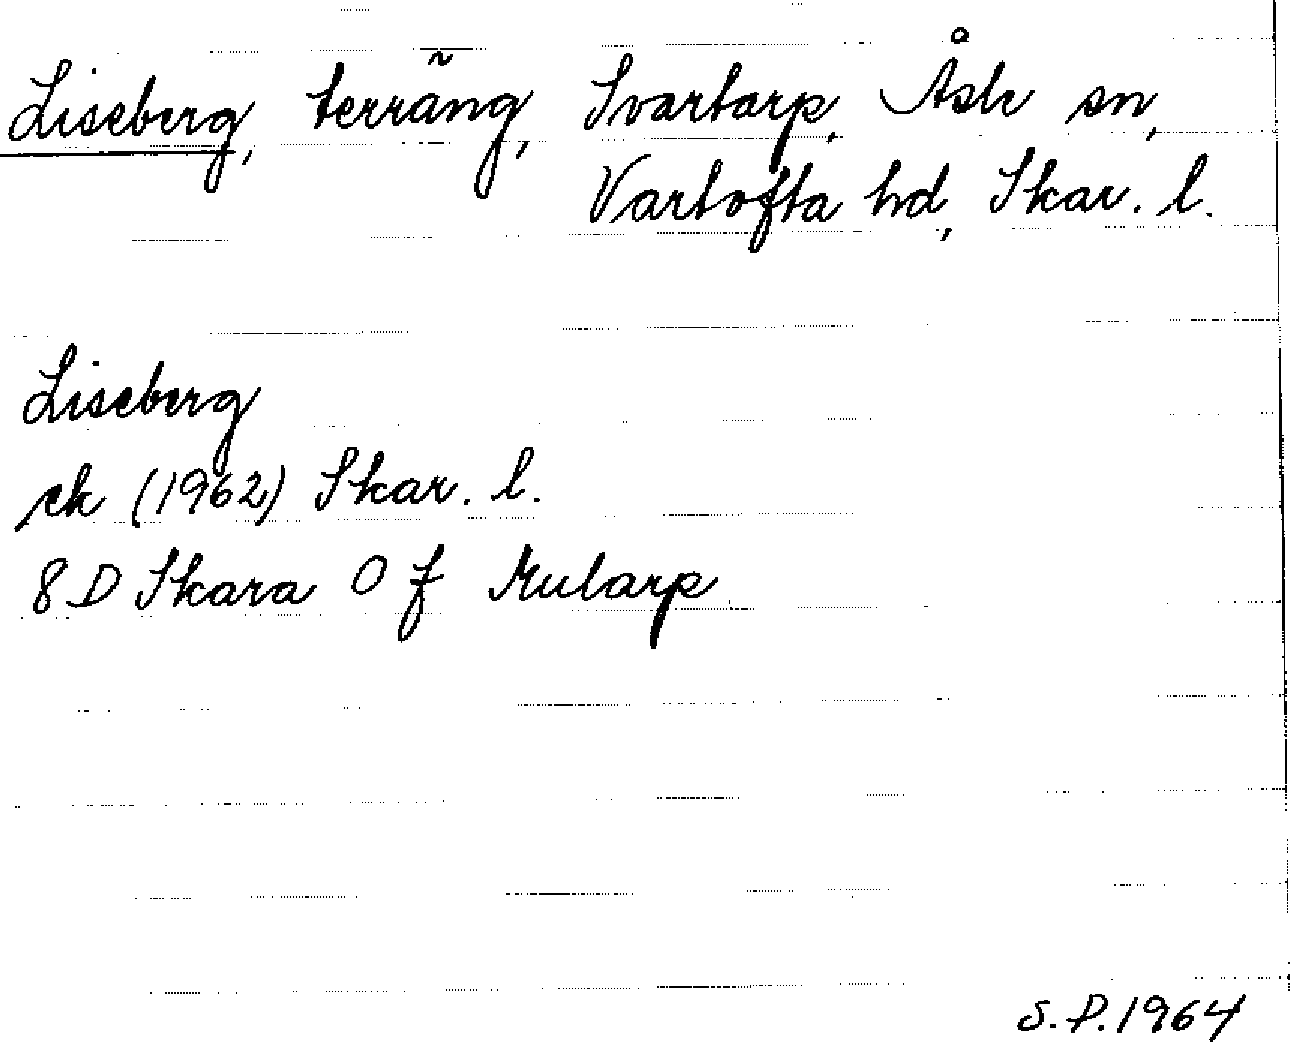 Liseberg, terräng, Svartarp, Åsle sn,
Vartofta hd, Skar. l.
Liseberg
ek (1962) Skar. l.
8 D Skara 0 f Mularp
S.P. 1964